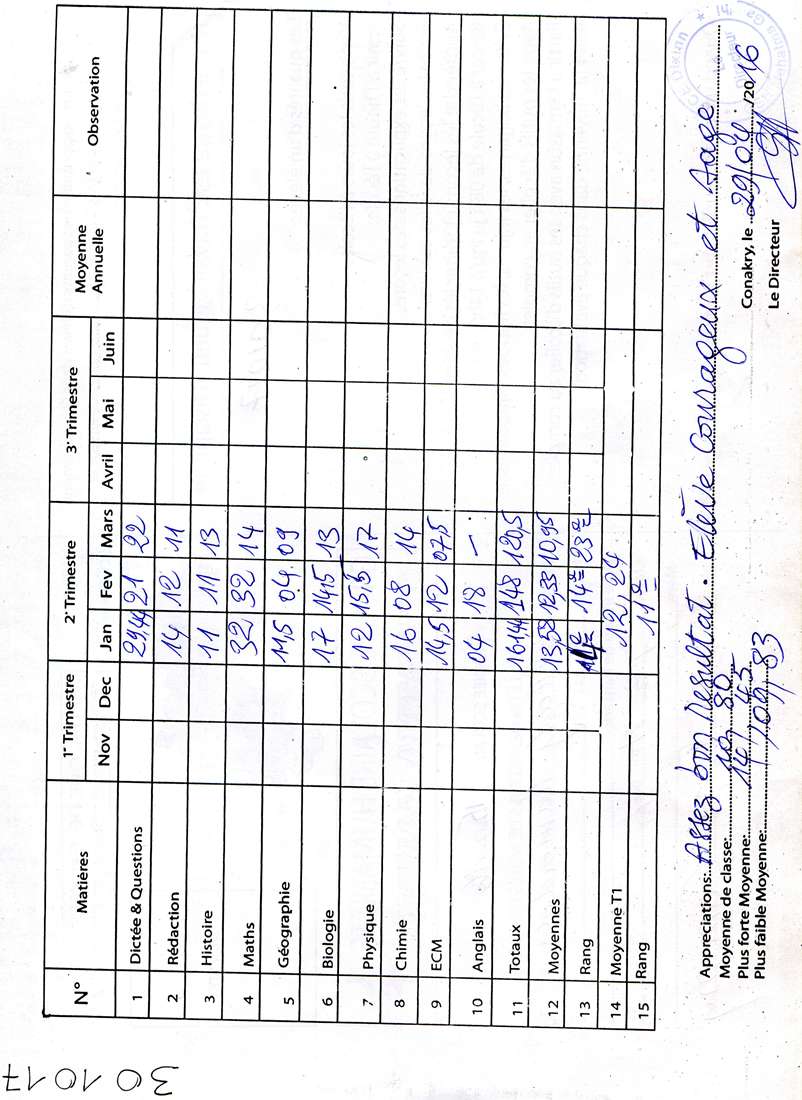 301017
N° Matières 1er Trimestre 2e Trimestre 3e Trimestre Moyenne Annuelle Observation
Nov Dec Jan Fev Mars Avril Mai Juin
1 Dictée & Questions 29,44 21 22
2 Rédaction 14 12 11
3 Histoire 11 11 13
4 Maths 32 32 14
5 Géographie 11,5 04 09
6 Biologie 17 14,5 13
7 Physique 12 15,5 17
8 Chimie 16 08 14
9 ECM 14,5 12 07,5
10 Anglais 04 18 —
11 Totaux 161,44 148 120,5
12 Moyennes 13,52 12,33 10,95
13 Rang 14e 23e
14 Moyenne T1 12,24
15 Rang 11e
Appreciations: Assez bon Resultat. Elève Courageux et Sage
Moyenne de classe: 10,80
Plus forte Moyenne: 14,43
Plus faible Moyenne: 09,83
Conakry, le 29/04/2016
Le Directeur